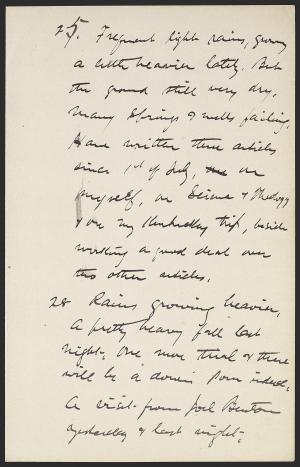 25. Frequent light rains, growing
a little heavier lately. But
the ground still very dry,
many springs & wells failing.
Have written three articles
since 1st of July, one on
myself, on Science & Theology
& one my Kentucky trip, beside
working a good deal over
this other articles.
28 Rains growing heavier,
A pretty heavy fall last
night. One more trial & there
will be a down pour indeed.
A visit from Joel Benton
yesterday & last night.